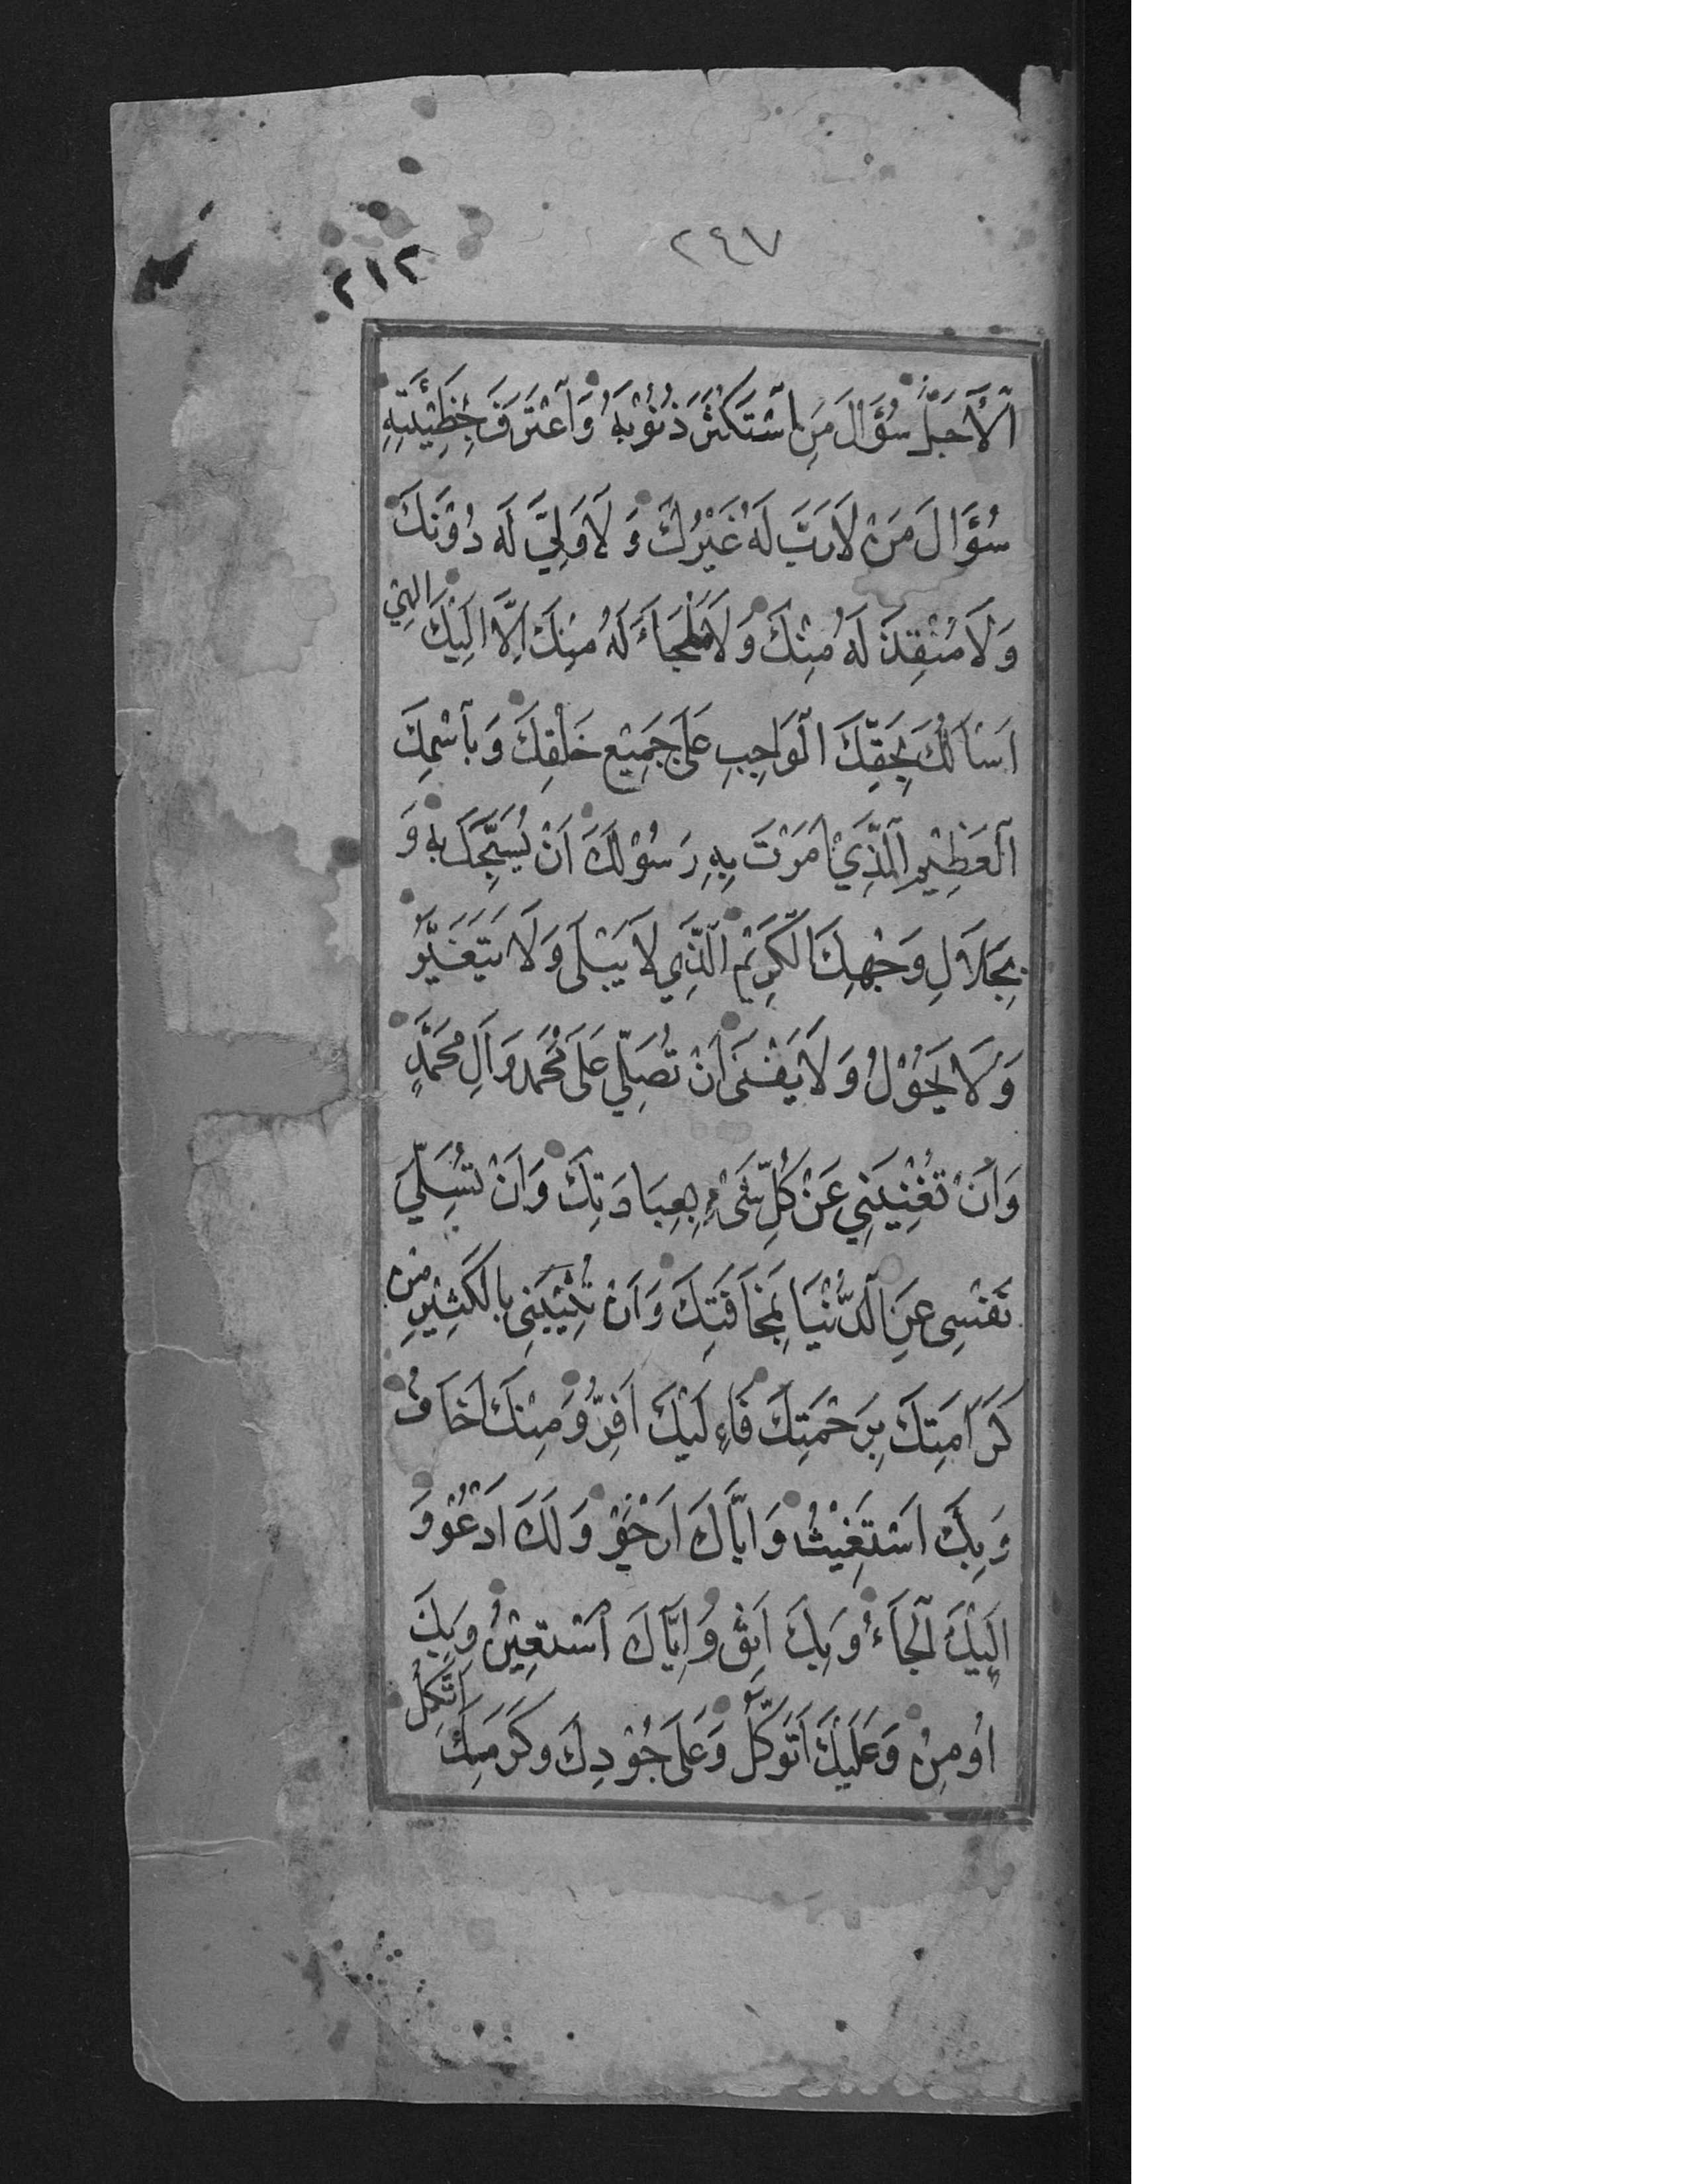 ٢٤٧
٢١٢
اَلْأَجَلُّ سُؤَالَ مَنِ اسْتَكْثَرَ ذُنُوْبَهُ وَاعْتَرَفَ بِخَطِيْئَتِهِ
سُؤَالَ مَنْ لَا رَبَّ لَهُ غَيْرُكَ وَ لَا وَلِيَّ لَهُ دُوْنَكَ
وَلَا مُنْقِذَ لَهُ مِنْكَ وَلَا مَلْجَاءَ لَهُ مِنْكَ اِلَّا اِلَيْكَ الهِي
اَسْاَلُكَ بِحَقِّكَ الْوَاجِبِ عَلَى جَمِيْعِ خَلْقِكَ وَبِاسْمِكَ
الْعَظِيْمِ الَّذِيْ اَمَرْتَ بِهِ رَسُوْلَكَ اَنْ يُسَبِّحَكَ بِهِ وَ
بِجَلَالِ وَجْهِكَ الْكَرِيْمِ الَّذِي لَا يَبْلَى وَلَا يَتَغَيَّرُ
وَلَا يَحُوْلُ وَلَا يَفْنَى اَنْ تُصَلِّيَ عَلَى مُحَمَّدٍ وَآلِ مُحَمَّدٍ
وَاَنْ تُغْنِيَنِي عَنْ كُلِّ شَىْءٍ بِعِبَادَتِكَ وَاَنْ تُسَلِّيَ
نَفْسِى عَنِ الدُّنْيَا بِمَخَافَتِكَ وَاَنْ تُثِيْبَنِى بِالْكَثِيْرِ مِنْ
كَرَامَتِكَ بِرَحْمَتِكَ فَاِلَيْكَ اَفِرُّ وَمِنْكَ اَخَافُ
وَبِكَ اَسْتَغِيْثُ وَاِيَّاكَ اَرْجُوْ وَلَكَ اَدْعُوْ وَ
اِلَيْكَ اَلْجَاءُ وَبِكَ اَثِقُ وَاِيَّاكَ اَسْتَعِيْنُ وَبِكَ
اُومِنُ وَعَلَيْكَ اَتَوَكَّلُ وَعَلَى جُوْدِكَ وَكَرَمِكَ اَتَّكِلُ